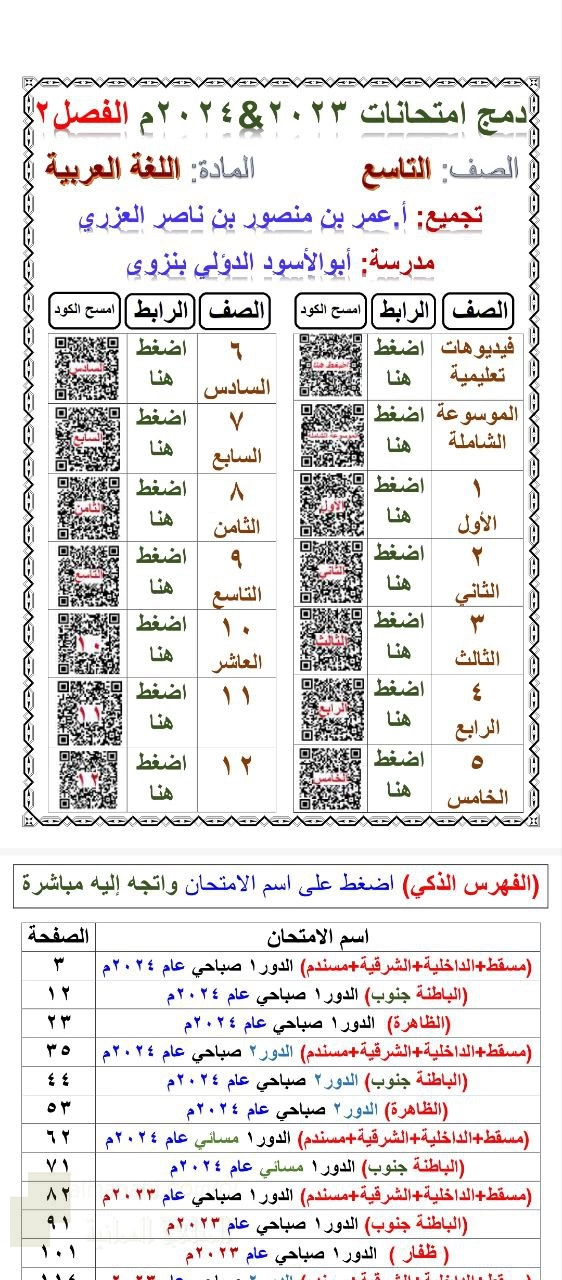 دمج امتحانات ٢٠٢٣&٢٠٢٤م الفصل٢
الصف: التاسع المادة: اللغة العربية
تجميع: أ.عمر بن منصور بن ناصر العزري
مدرسة: أبوالأسود الدؤلي بنزوى
الصف الرابط امسح الكود
فيديوهات تعليمية اضغط هنا اضغط هنا
الموسوعة الشاملة اضغط هنا الموسوعة الشاملة
١ الأول اضغط هنا الأول
٢ الثاني اضغط هنا الثاني
٣ الثالث اضغط هنا الثالث
٤ الرابع اضغط هنا الرابع
٥ الخامس اضغط هنا الخامس
الصف الرابط امسح الكود
٦ السادس اضغط هنا السادس
٧ السابع اضغط هنا السابع
٨ الثامن اضغط هنا الثامن
٩ التاسع اضغط هنا التاسع
١٠ العاشر اضغط هنا ١٠
١١ اضغط هنا ١١
١٢ اضغط هنا ١٢
(الفهرس الذكي) اضغط على اسم الامتحان واتجه إليه مباشرة
اسم الامتحان الصفحة
(مسقط+الداخلية+الشرقية+مسندم) الدور١ صباحي عام ٢٠٢٤م ٣
(الباطنة جنوب) الدور١ صباحي عام ٢٠٢٤م ١٢
(الظاهرة) الدور١ صباحي عام ٢٠٢٤م ٢٣
(مسقط+الداخلية+الشرقية+مسندم) الدور٢ صباحي عام ٢٠٢٤م ٣٥
(الباطنة جنوب) الدور٢ صباحي عام ٢٠٢٤م ٤٤
(الظاهرة) الدور٢ صباحي عام ٢٠٢٤م ٥٣
(مسقط+الداخلية+الشرقية+مسندم) الدور١ مسائي عام ٢٠٢٤م ٦٢
(الباطنة جنوب) الدور١ مسائي عام ٢٠٢٤م ٧١
(مسقط+الداخلية+الشرقية+مسندم) الدور١ صباحي عام ٢٠٢٣م ٨٢
(الباطنة جنوب) الدور١ صباحي عام ٢٠٢٣م ٩١
( ظفار ) الدور١ صباحي عام ٢٠٢٣م ١٠١